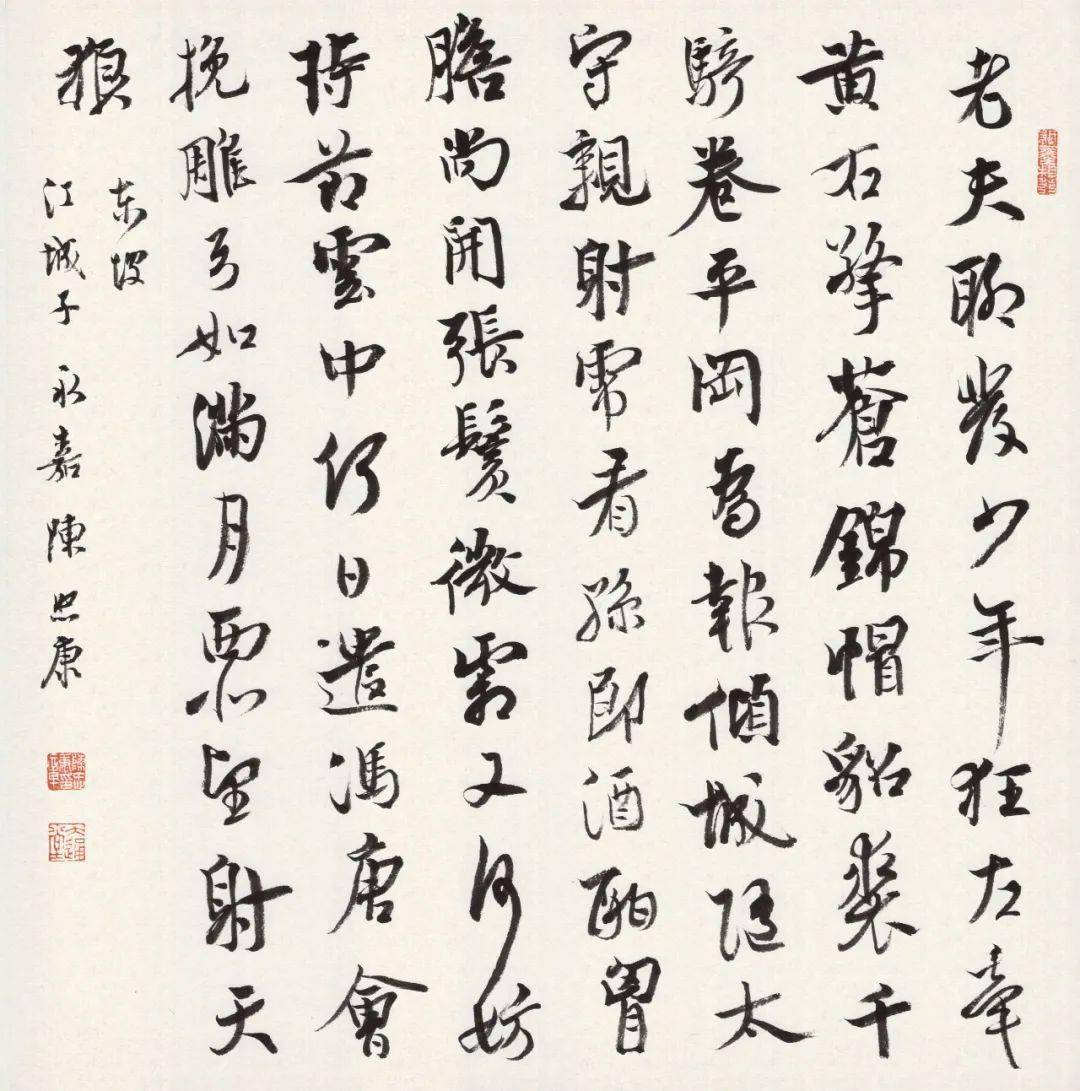 老夫聊發少年狂左牽
黃右擎蒼錦帽貂裘千
騎卷平岡為報傾城隨太
守親射虎看孫郎酒酣胷
膽尚開張鬢微霜又何妨
持節雲中何日遣馮唐會
挽雕弓如滿月西北望射天
狼
東坡
江城子永嘉陳忠康